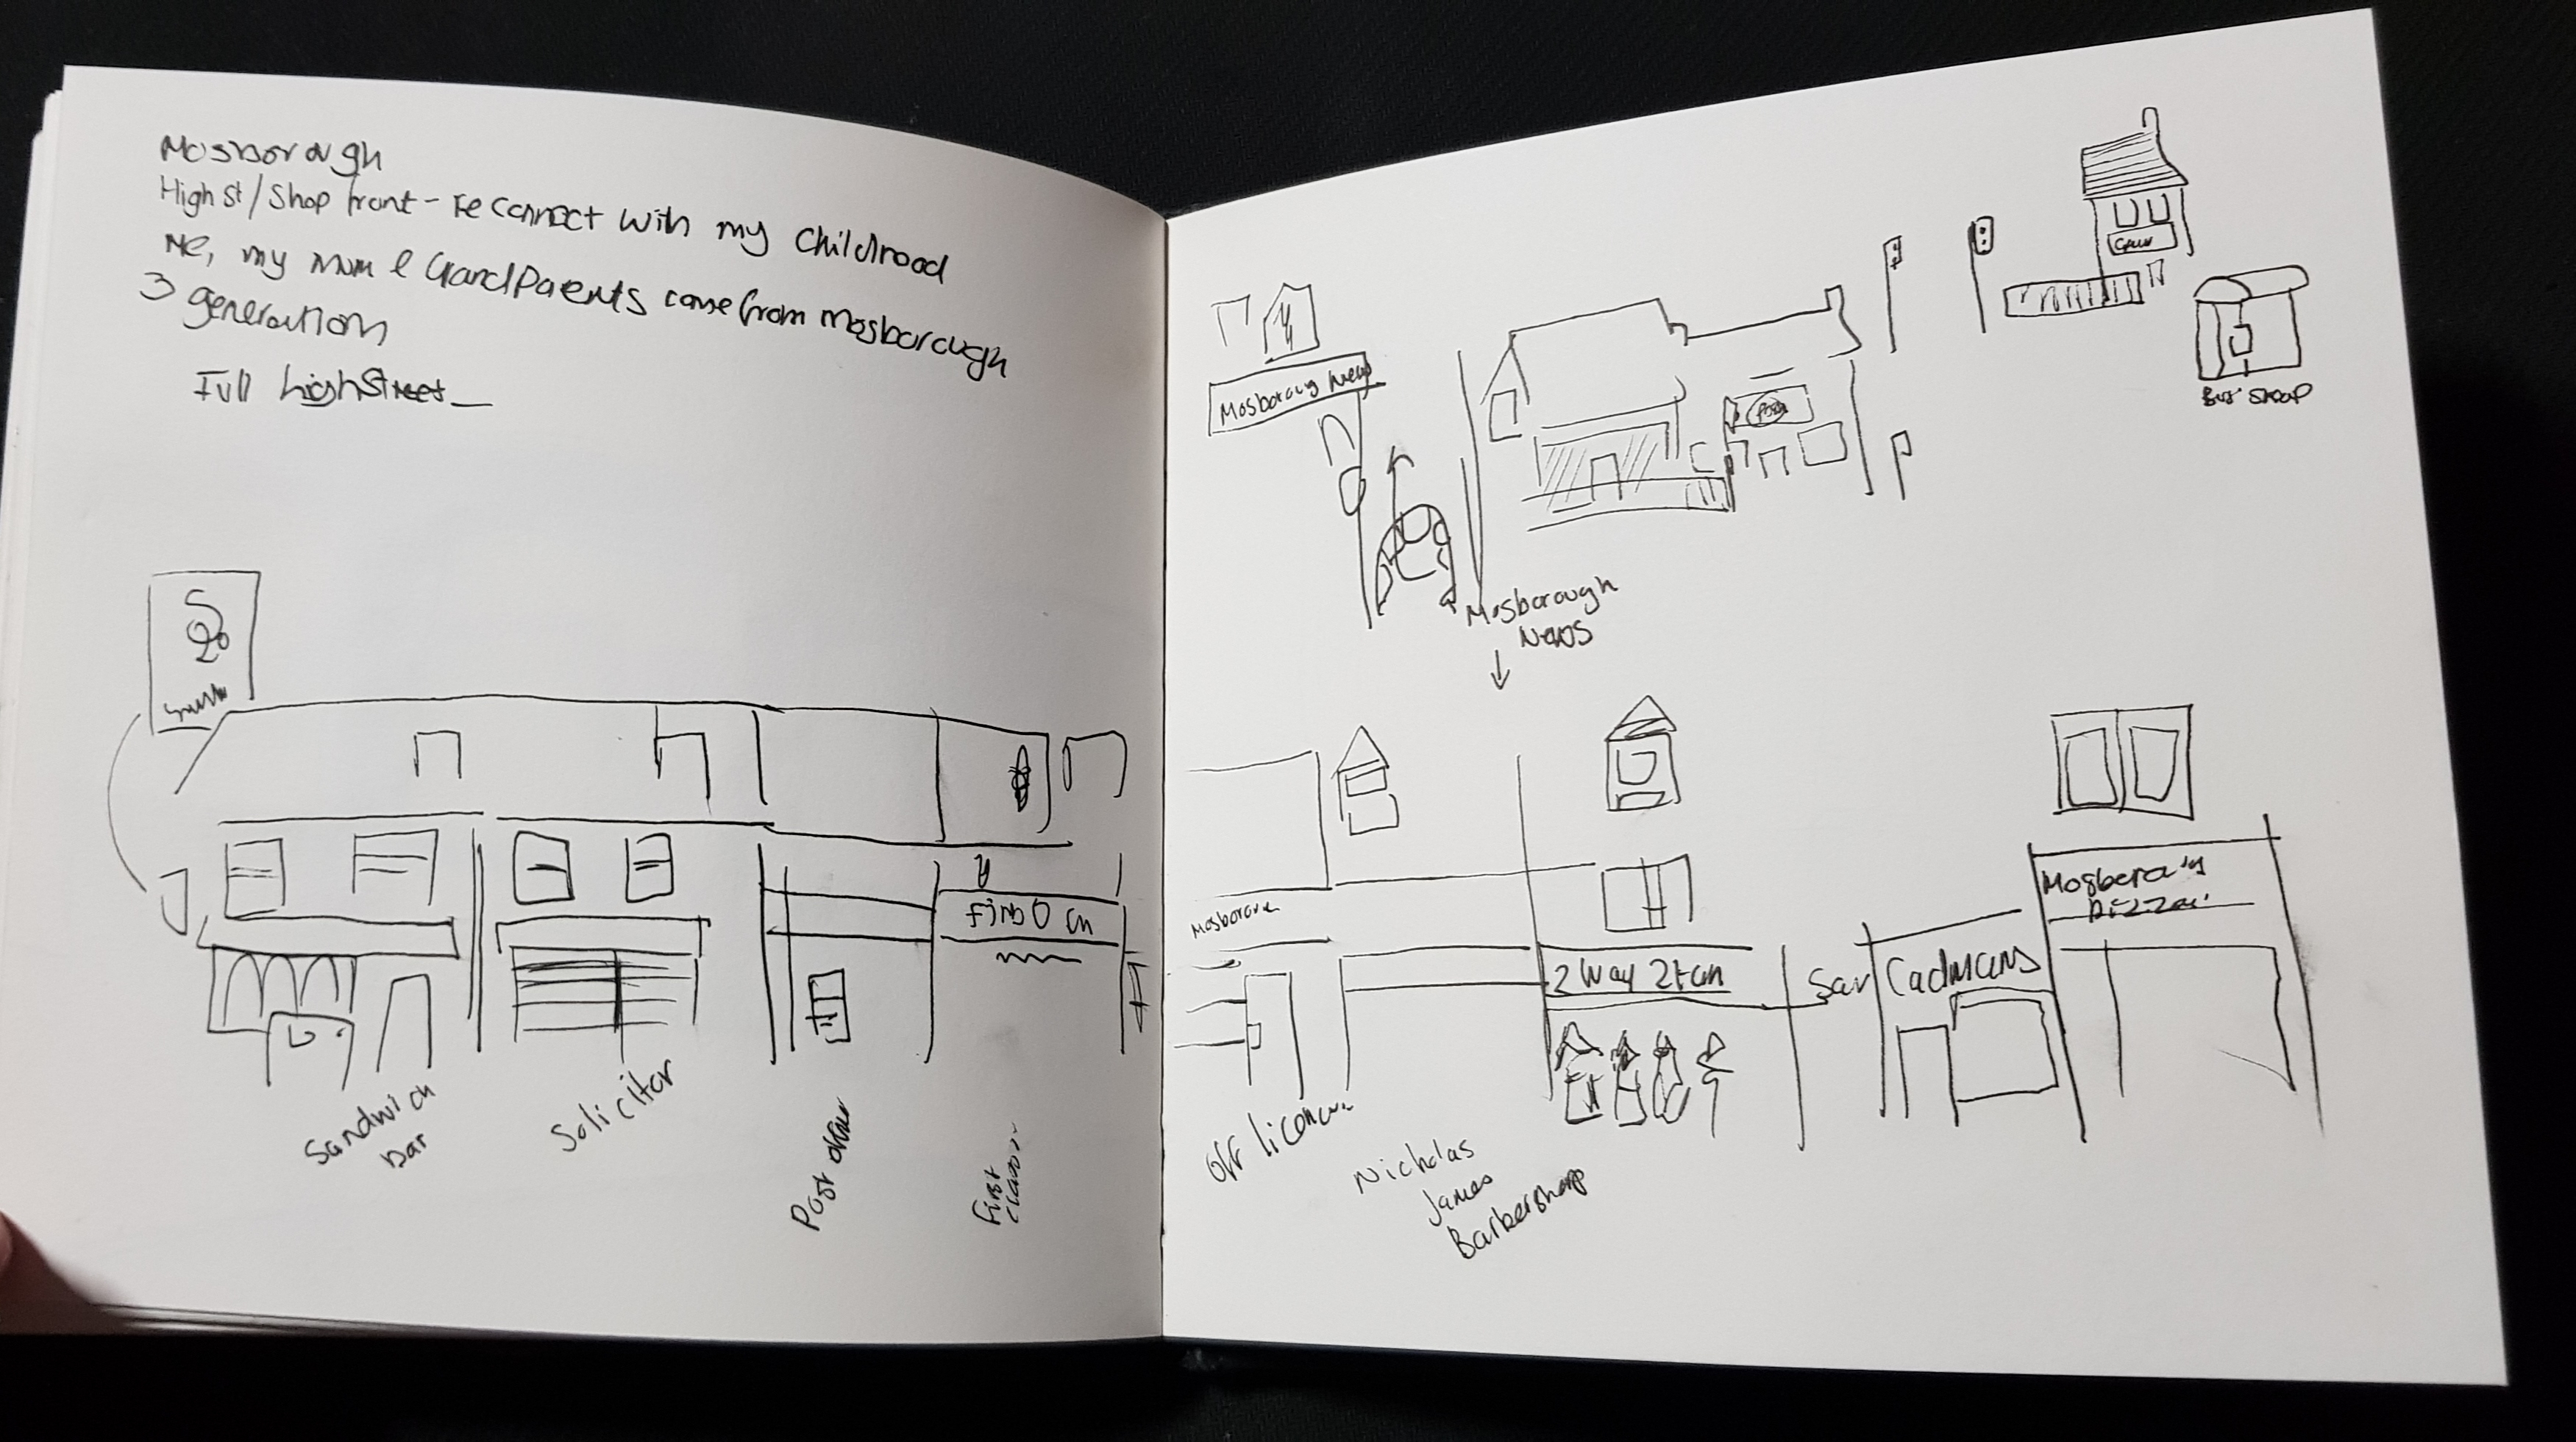 Mosborough
High st/Shop front - reconnect with my childhood
Me, my mum & GrandParents come from Mosborough
3 generation
Full highstreet
Sandwich bar
Solicitor
Post office
First class
Mosboroug News
Bus stop
Mosborough
News
Off licence
Nicholas
James
Barbershop
2 Way 2tan
Sav
Cadmans